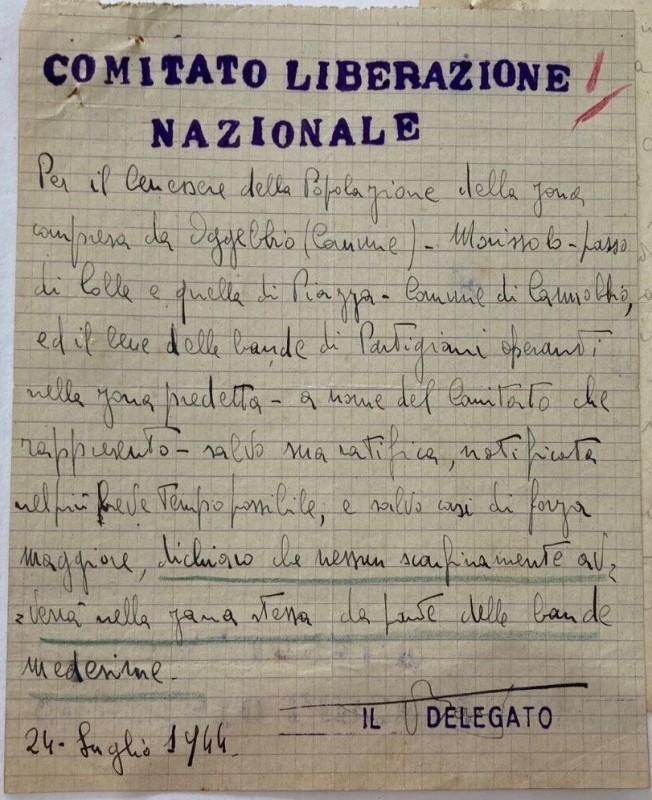 COMITATO LIBERAZIONE
NAZIONALE
Per il benessere della Popolazione della zona
compresa da Oggebbio (Comune) - Morissolo - passo
di Colle e quella di Piazza - Comune di Cannobbio,
ed il bene delle bande di Partigiani operanti
nella zona predetta - a nome del Comitato che
rappresento - salvo sua ratifica, notificata
nel più breve tempo possibile, e salvo casi di forza
maggiore, dichiaro che nessun sconfinamento av=
=verrà nella zona stessa da parte delle bande
medesime.
IL DELEGATO
24 - Luglio 1944.